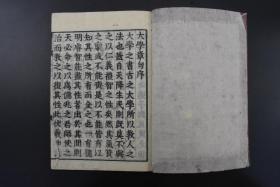 大學章句序
大學之書古之大學所以教人之
法也蓋自天降生民則既莫不與
之以仁義禮智之性矣然其氣質
之稟或不能齊是以不能皆有以
知其性之所有而全之也一有聰
明睿智能盡其性者出於其閒則
天必命之以爲億兆之君師使之
治而教之以復其性此伏羲神農